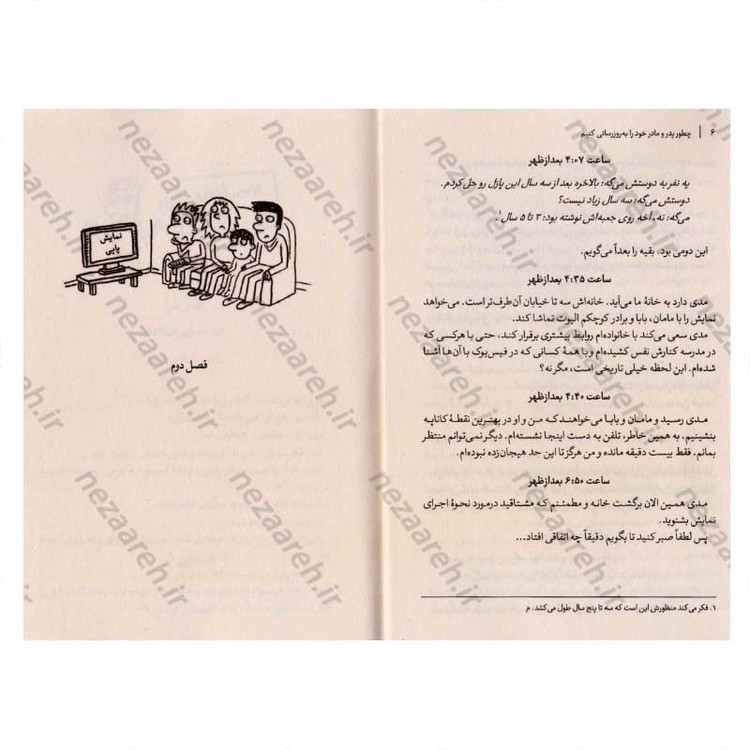 ۶ | چطور پدر و مادر خود را به‌روزرسانی کنیم
ساعت ۴:۰۷ بعدازظهر
یه نفر به دوستش می‌گه: بالاخره بعد از سه سال این پازل رو حل کردم.
دوستش می‌گه: سه سال زیاد نیست؟
می‌گه: نه، آخه روی جعبه‌اش نوشته بود: ۳ تا ۵ سال¹.
این دومی بود. بقیه را بعداً می‌گویم.
ساعت ۴:۳۵ بعدازظهر
مدی دارد به خانهٔ ما می‌آید. خانه‌اش سه تا خیابان آن‌طرف‌تر است. می‌خواهد
نمایش را با مامان، بابا و برادر کوچکم الیوت تماشا کند.
مدی سعی می‌کند با خانواده‌ام روابط بیشتری برقرار کند، حتی با هرکسی که
در مدرسه کنارش نفس کشیده‌ام و با همهٔ کسانی که در فیس‌بوک با آن‌ها آشنا
شده‌ام. این لحظه خیلی تاریخی است، مگر نه؟
ساعت ۴:۴۰ بعدازظهر
مدی رسید و مامان و بابا می‌خواهند که من و او در بهترین نقطهٔ کاناپه
بنشینیم. به همین خاطر، تلفن به دست اینجا نشسته‌ام. دیگر نمی‌توانم منتظر
بمانم. فقط بیست دقیقه مانده و من هرگز تا این حد هیجان‌زده نبوده‌ام.
ساعت ۶:۵۰ بعدازظهر
مدی همین الان برگشت خانه و مطمئنم که مشتاقید درمورد نحوهٔ اجرای
نمایش بشنوید.
پس لطفاً صبر کنید تا بگویم دقیقاً چه اتفاقی افتاد...
۱. فکر می‌کند منظورش این است که سه تا پنج سال طول می‌کشد. م
نمایش
پاپی
فصل دوم
nezaareh.ir
nezaareh.ir
nezaareh.ir
nezaareh.ir
nezaareh.ir
nezaareh.ir
nezaareh.ir
nezaareh.ir